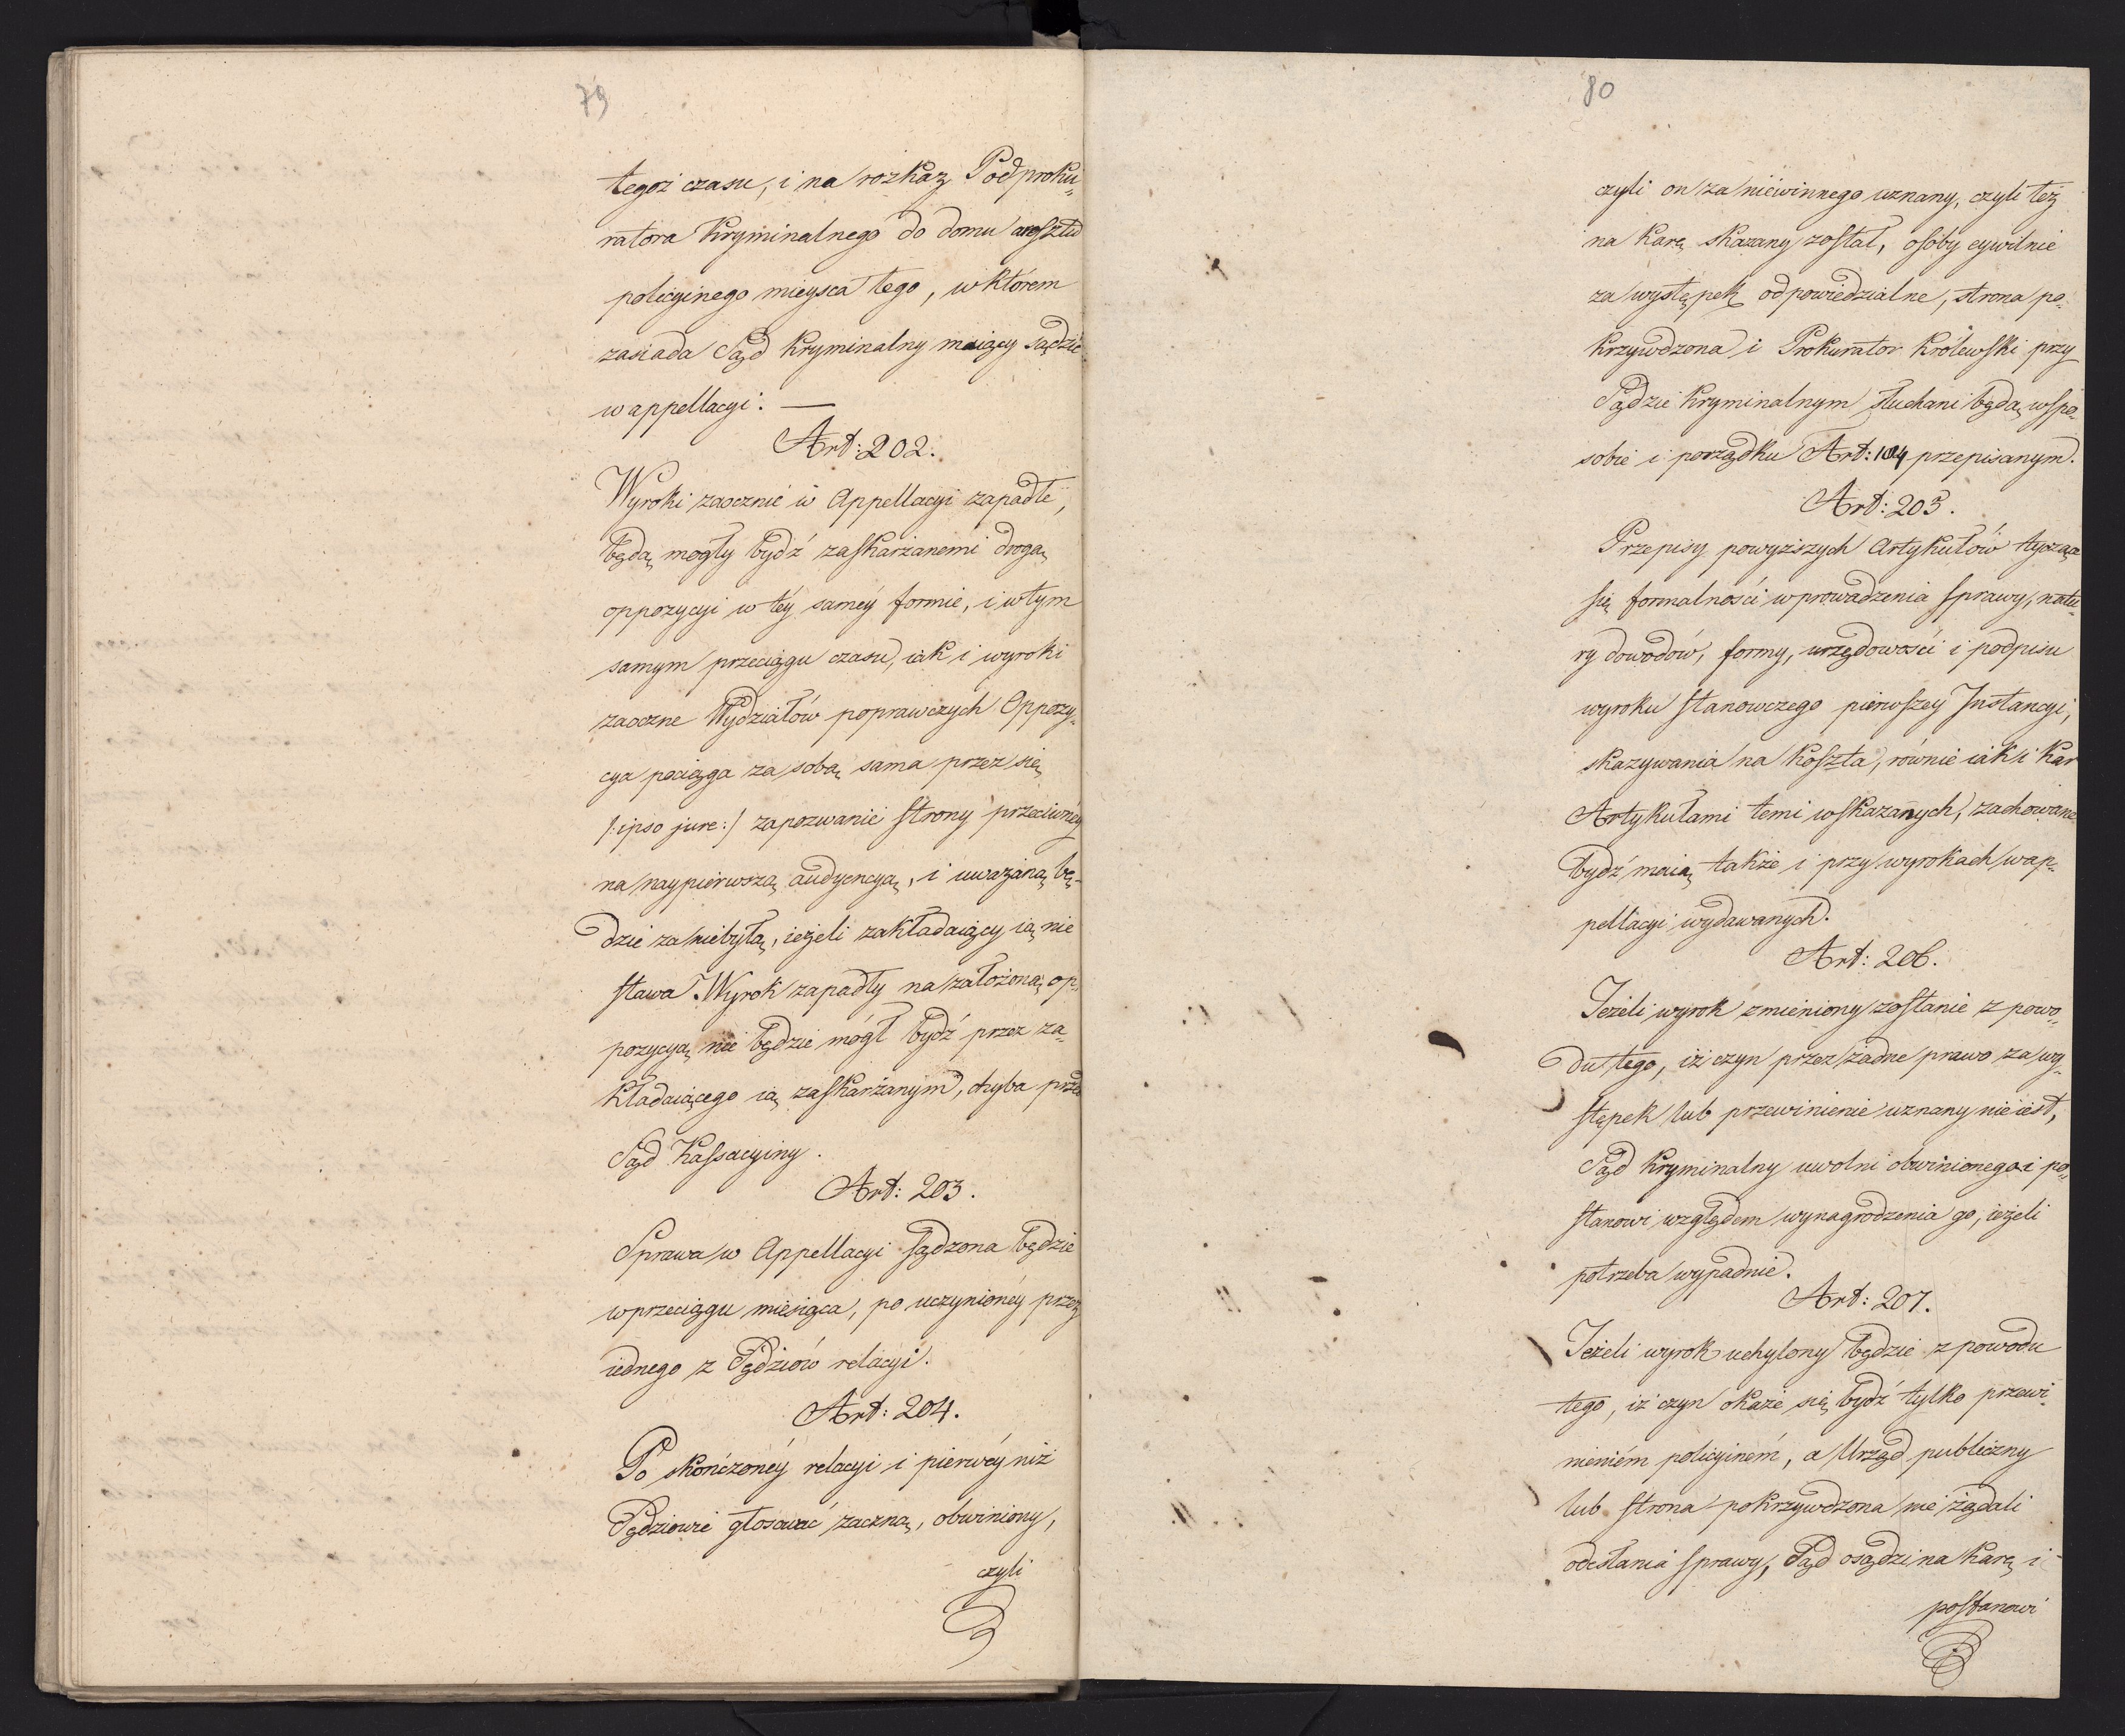 79
tegoż czasu, i na rozkaz Podproku„
ratora Kryminalnego do domu aresztu
policyinego mieysca tego, w którem
zasiada Sąd Kryminalny maiący sądzić
w appellacyi. —
Art: 202.
Wyroki zaocznie w Appellacyi zapadłe,
będą mogły bydź zaskarżanemi drogą
oppozycyi w téy saméy formie, i w tym
samym przeciągu czasu, iak i wyroki
zaoczne Wydziałów poprawczych Oppozy„
cya pociąga za sobą sama przez się
/:ipso jure:/ zapozwanie strony przeciwnéy
na naypierwszą audyencyą, i uważaną bę„
dzie za niebyłą, ieżeli zakładaiący ią nie
stawa. Wyrok zapadły na założoną op„
pozycyą nie będzie mógł bydź przez za„
kładaiącego ią zaskarżanym, chyba przed
Sąd Kassacyiny.
Art: 203.
Sprawa w Appellacyi sądzona będzie
w przeciągu miesiąca, po uczynionéy przez
iednego z Sędziów relacyi.
Art: 204.
Po skończonéy relacyi i pierwéy niż
Sędziowie głosować zaczną, obwiniony,
czyli
80
czyli on za niewinnego uznany, czyli też
na karę skazany został, osoby cywilnie
za występek odpowiedzialne, strona po„
krzywdzona i Prokurator Królewski przy
Sądzie Kryminalnym słuchani będą w spo„
sobie i porządku Art: 184 przepisanym.
Art: 205.
Przepisy powyższych Artykułów tyczące
się formalności w prowadzenia sprawy, natu„
ry dowodów, formy, urzędowości i podpisu
wyroku stanowczego pierwszey Instancyi,
skazywania na koszta, równie iak i kar
Artykułami temi wskazanych, zachowane
bydź maią także i przy wyrokach w ap„
pellacyi wydawanych.
Art: 206.
Jeżeli wyrok zmieniony zostanie z powo„
du tego, iż czyn przez żadne prawo za wy„
stępek lub przewinienie uznany nie iest,
Sąd Kryminalny uwolni obwinionego i po„
stanowi względem wynagrodzenia go, ieżeli
potrzeba wypadnie.
Art: 207.
Jeżeli wyrok uchylony będzie z powodu
tego, iż czyn okaże się bydź tylko przewi„
nieniém policyiném, a Urząd publiczny
lub strona pokrzywdzona nie żądali
odesłania sprawy, Sąd osądzi na karę i
postanowi